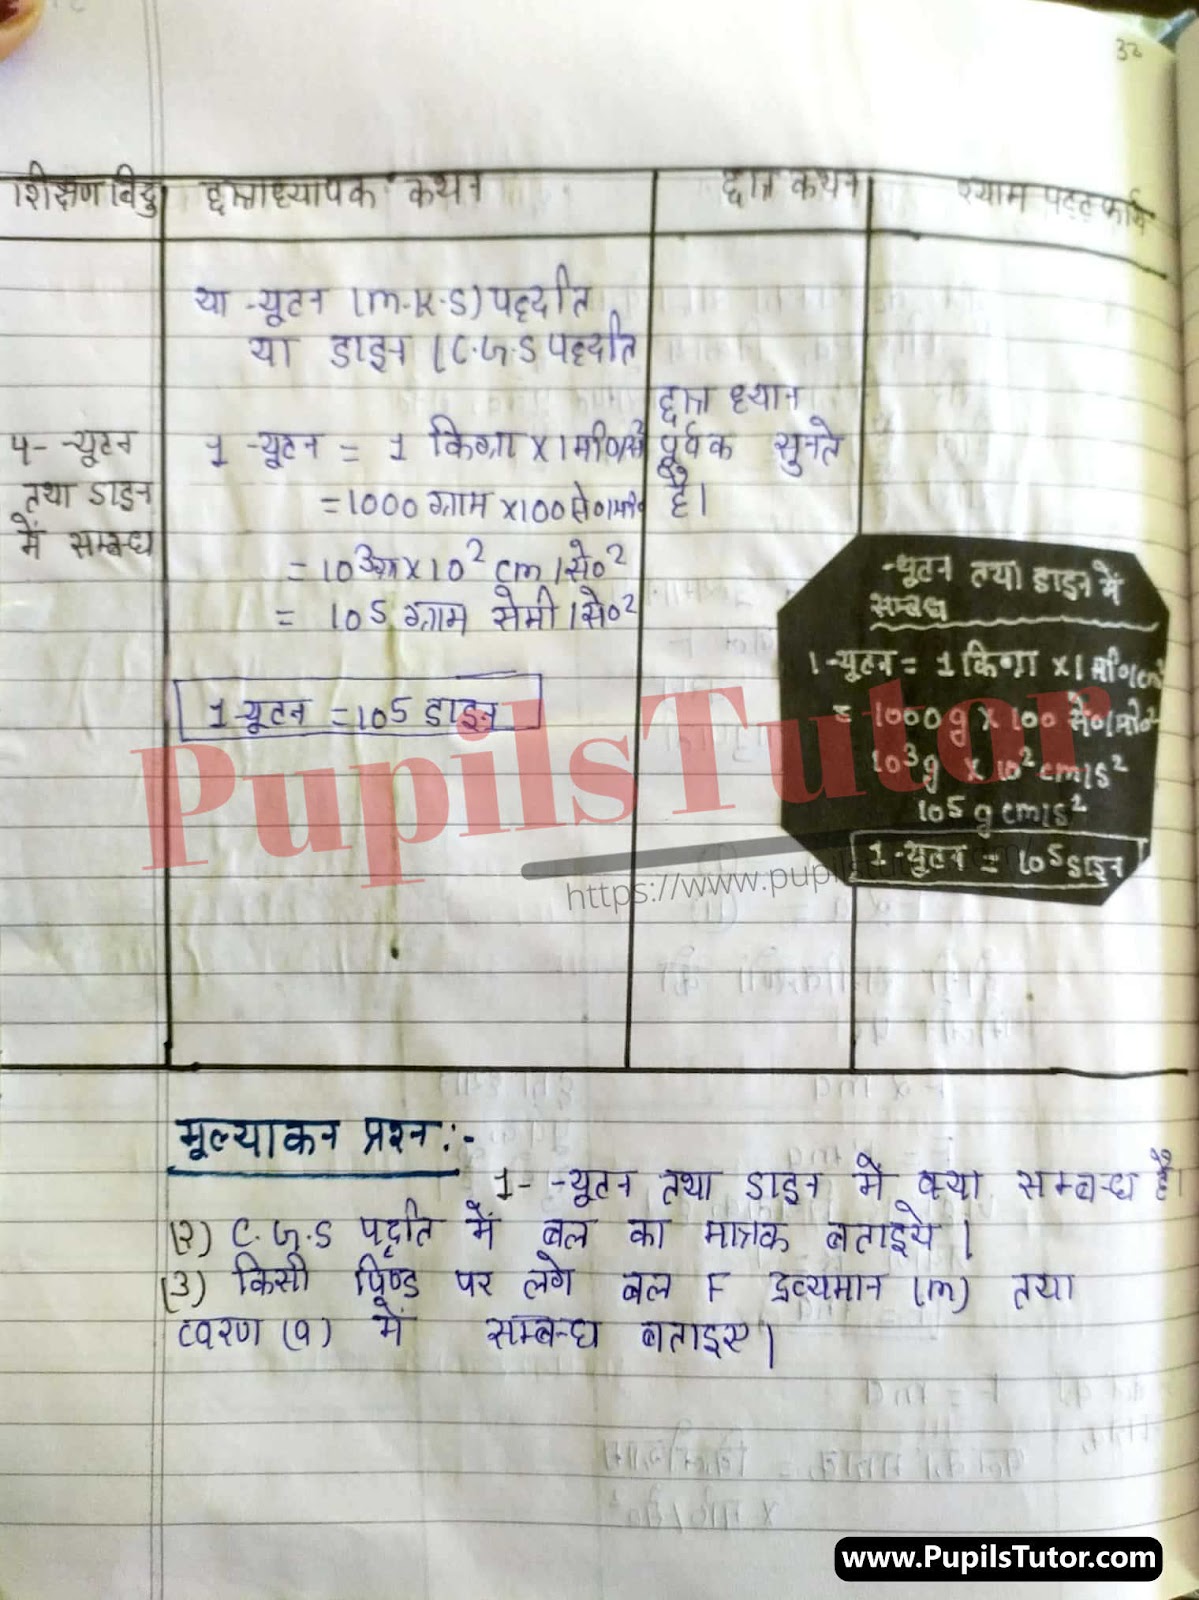 32
शिक्षण बिंदु छात्राध्यापक कथन छात्र कथन श्याम पट्ट कार्य
या न्यूटन (M.K.S) पद्दति
या डाइन (C.G.S पद्दति
छात्र ध्यान
पूर्वक सुनते
है।
4- न्यूटन
तथा डाइन
में सम्बन्ध
1 न्यूटन = 1 किग्रा × 1 मी०/से
= 1000 ग्राम × 100 से०/मी०
= 10³ग्रा × 10² cm/से०²
= 10⁵ ग्राम सेमी/से०²
1 न्यूटन = 10⁵ डाइन
न्यूटन तथा डाइन में
सम्बन्ध
1 न्यूटन = 1 किग्रा × 1 मी०/cm
= 1000g × 100 से०/मी०²
10³g × 10² cm/s²
10⁵ g cm/s²
1 न्यूटन = 10⁵ डाइन
PupilsTutor
https://www.pupilstutor.com/
मूल्याकन प्रश्न:-
1- न्यूटन तथा डाइन में क्या सम्बन्ध है।
(२) C.G.S पद्दति में बल का मात्रक बताइये।
(3) किसी पिण्ड पर लगे बल F द्रव्यमान (m) तथा
त्वरण (a) में सम्बन्ध बताइए।
www.PupilsTutor.com